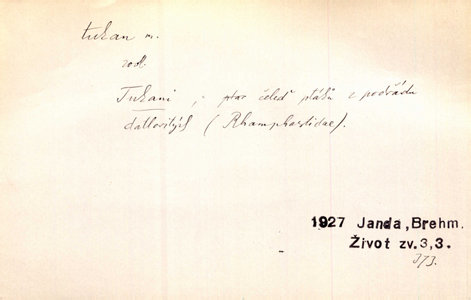 tukan m.
rod.
Tukani, čeleď ptáků z podřádu
datlovitých (Rhamphastidae).
1927 Janda, Brehm.
Život zv. 3,3.
373.